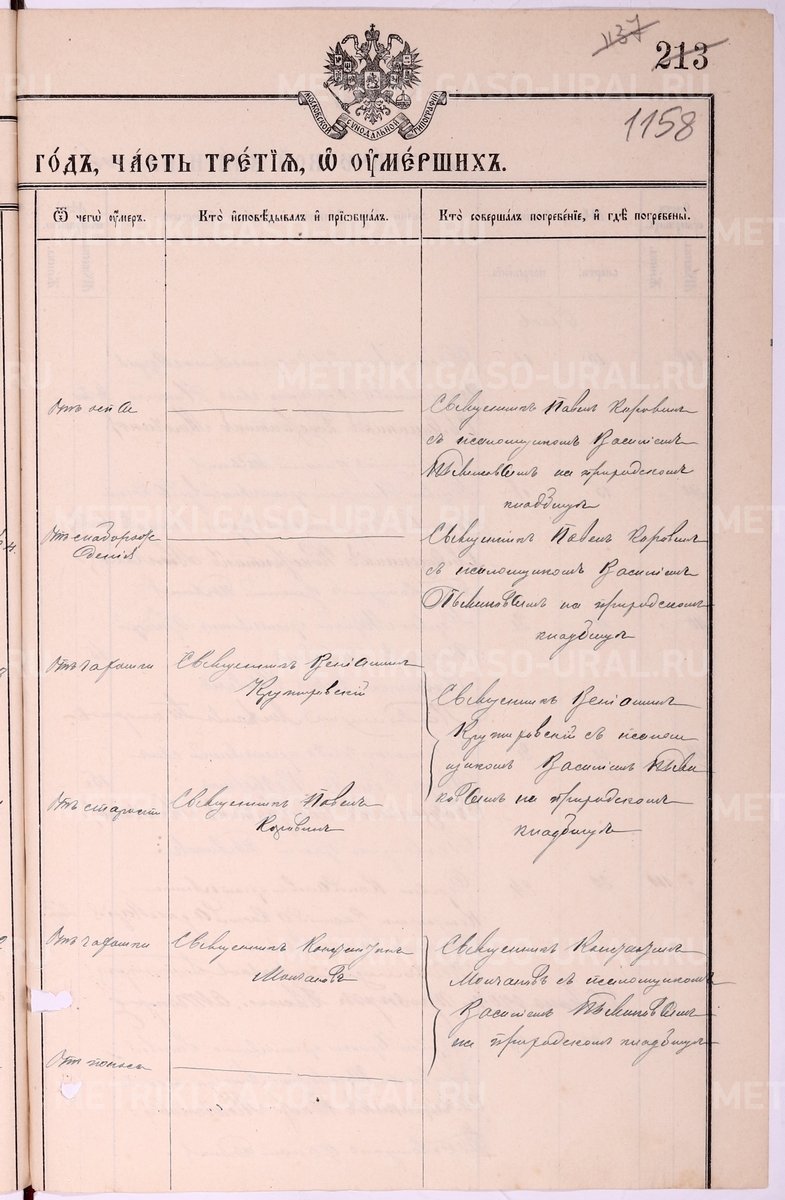 1137
213
МОСКОВСКОЙ СѴНОДАЛЬНОЙ ТИПОГРАФІИ
1158
ГО́ДЪ, ЧА́СТЬ ТРЕ́ТІЯ, Ѡ҆ ОУ҆МЕ́РШИХЪ.
Ѿ чегѡ̀ оу҆́меръ.
Кто̀ и҆сповѣ́дывалъ и҆ прїѡбща́лъ.
Кто̀ соверша́лъ погребе́нїе, и҆ гдѣ̀ погребены̀.
Отъ оспы
Священникъ Павелъ Коровинъ
съ псаломщикомъ Василіемъ
на приходскомъ
кладбищѣ
Отъ слаборож
денія
Священникъ Павелъ Коровинъ
съ псаломщикомъ Василіемъ
на приходскомъ
кладбищѣ
Отъ чахотки
Священникъ Веніаминъ
Священникъ Веніаминъ
съ псалом
щикомъ Василіемъ
на приходскомъ
кладбищѣ
Отъ старости
Священникъ Павелъ
Коровинъ
Отъ чахотки
Священникъ Константинъ
Молчановъ
Священникъ Константинъ
Молчановъ съ псаломщикомъ
Василіемъ
на приходскомъ кладбищѣ
Отъ поноса
METRIKI.GASO-URAL.RU